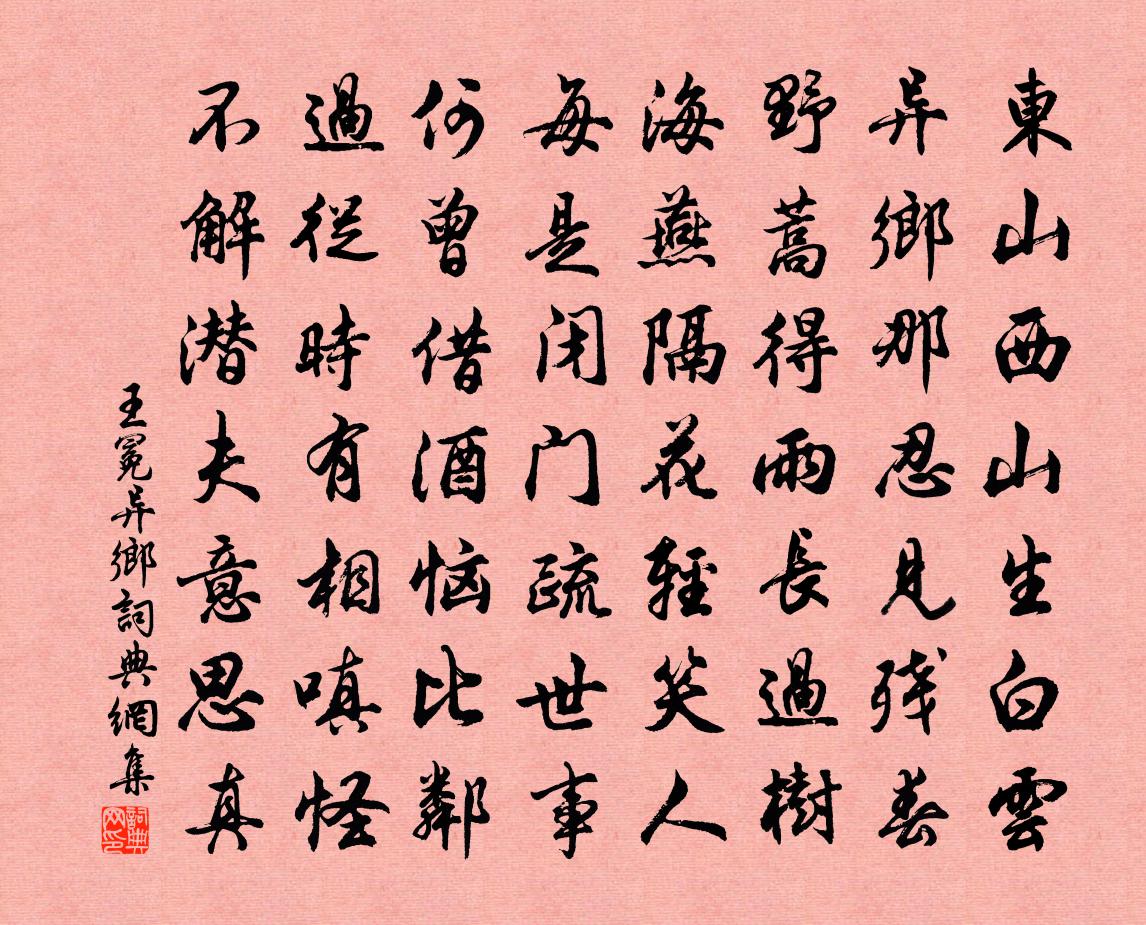 東山西山生白雲
异鄉那忍見残春
野蒿得雨長過樹
海燕隔花輕笑人
每是闭门疏世事
何曾借酒恼比鄰
過從時有相嗔怪
不解潜夫意思真
王冕异鄉詞典網集
詞典网印